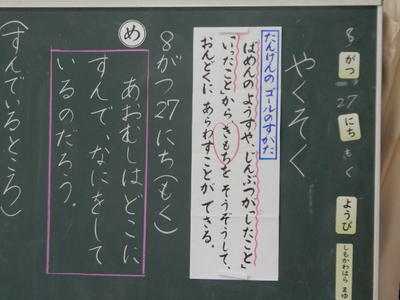 8がつ27にち もく ようび
しもかわはら まゆ
やくそく
たんけんのゴールのすがた
ばめんのようすや、じんぶつが「したこと」
「いったこと」から きもちを そうぞうして、
おんどくに あらわすことが できる。
8がつ27にち(もく)
め
あおむしはどこに
すんで、なにをして
いるのだろう。
(すんでいるところ)